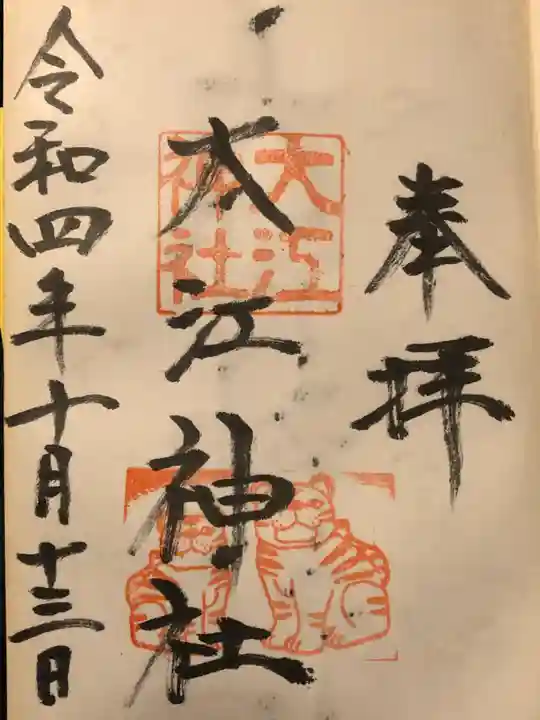 奉拝
大江神社
大江神社
令和四年十月十三日